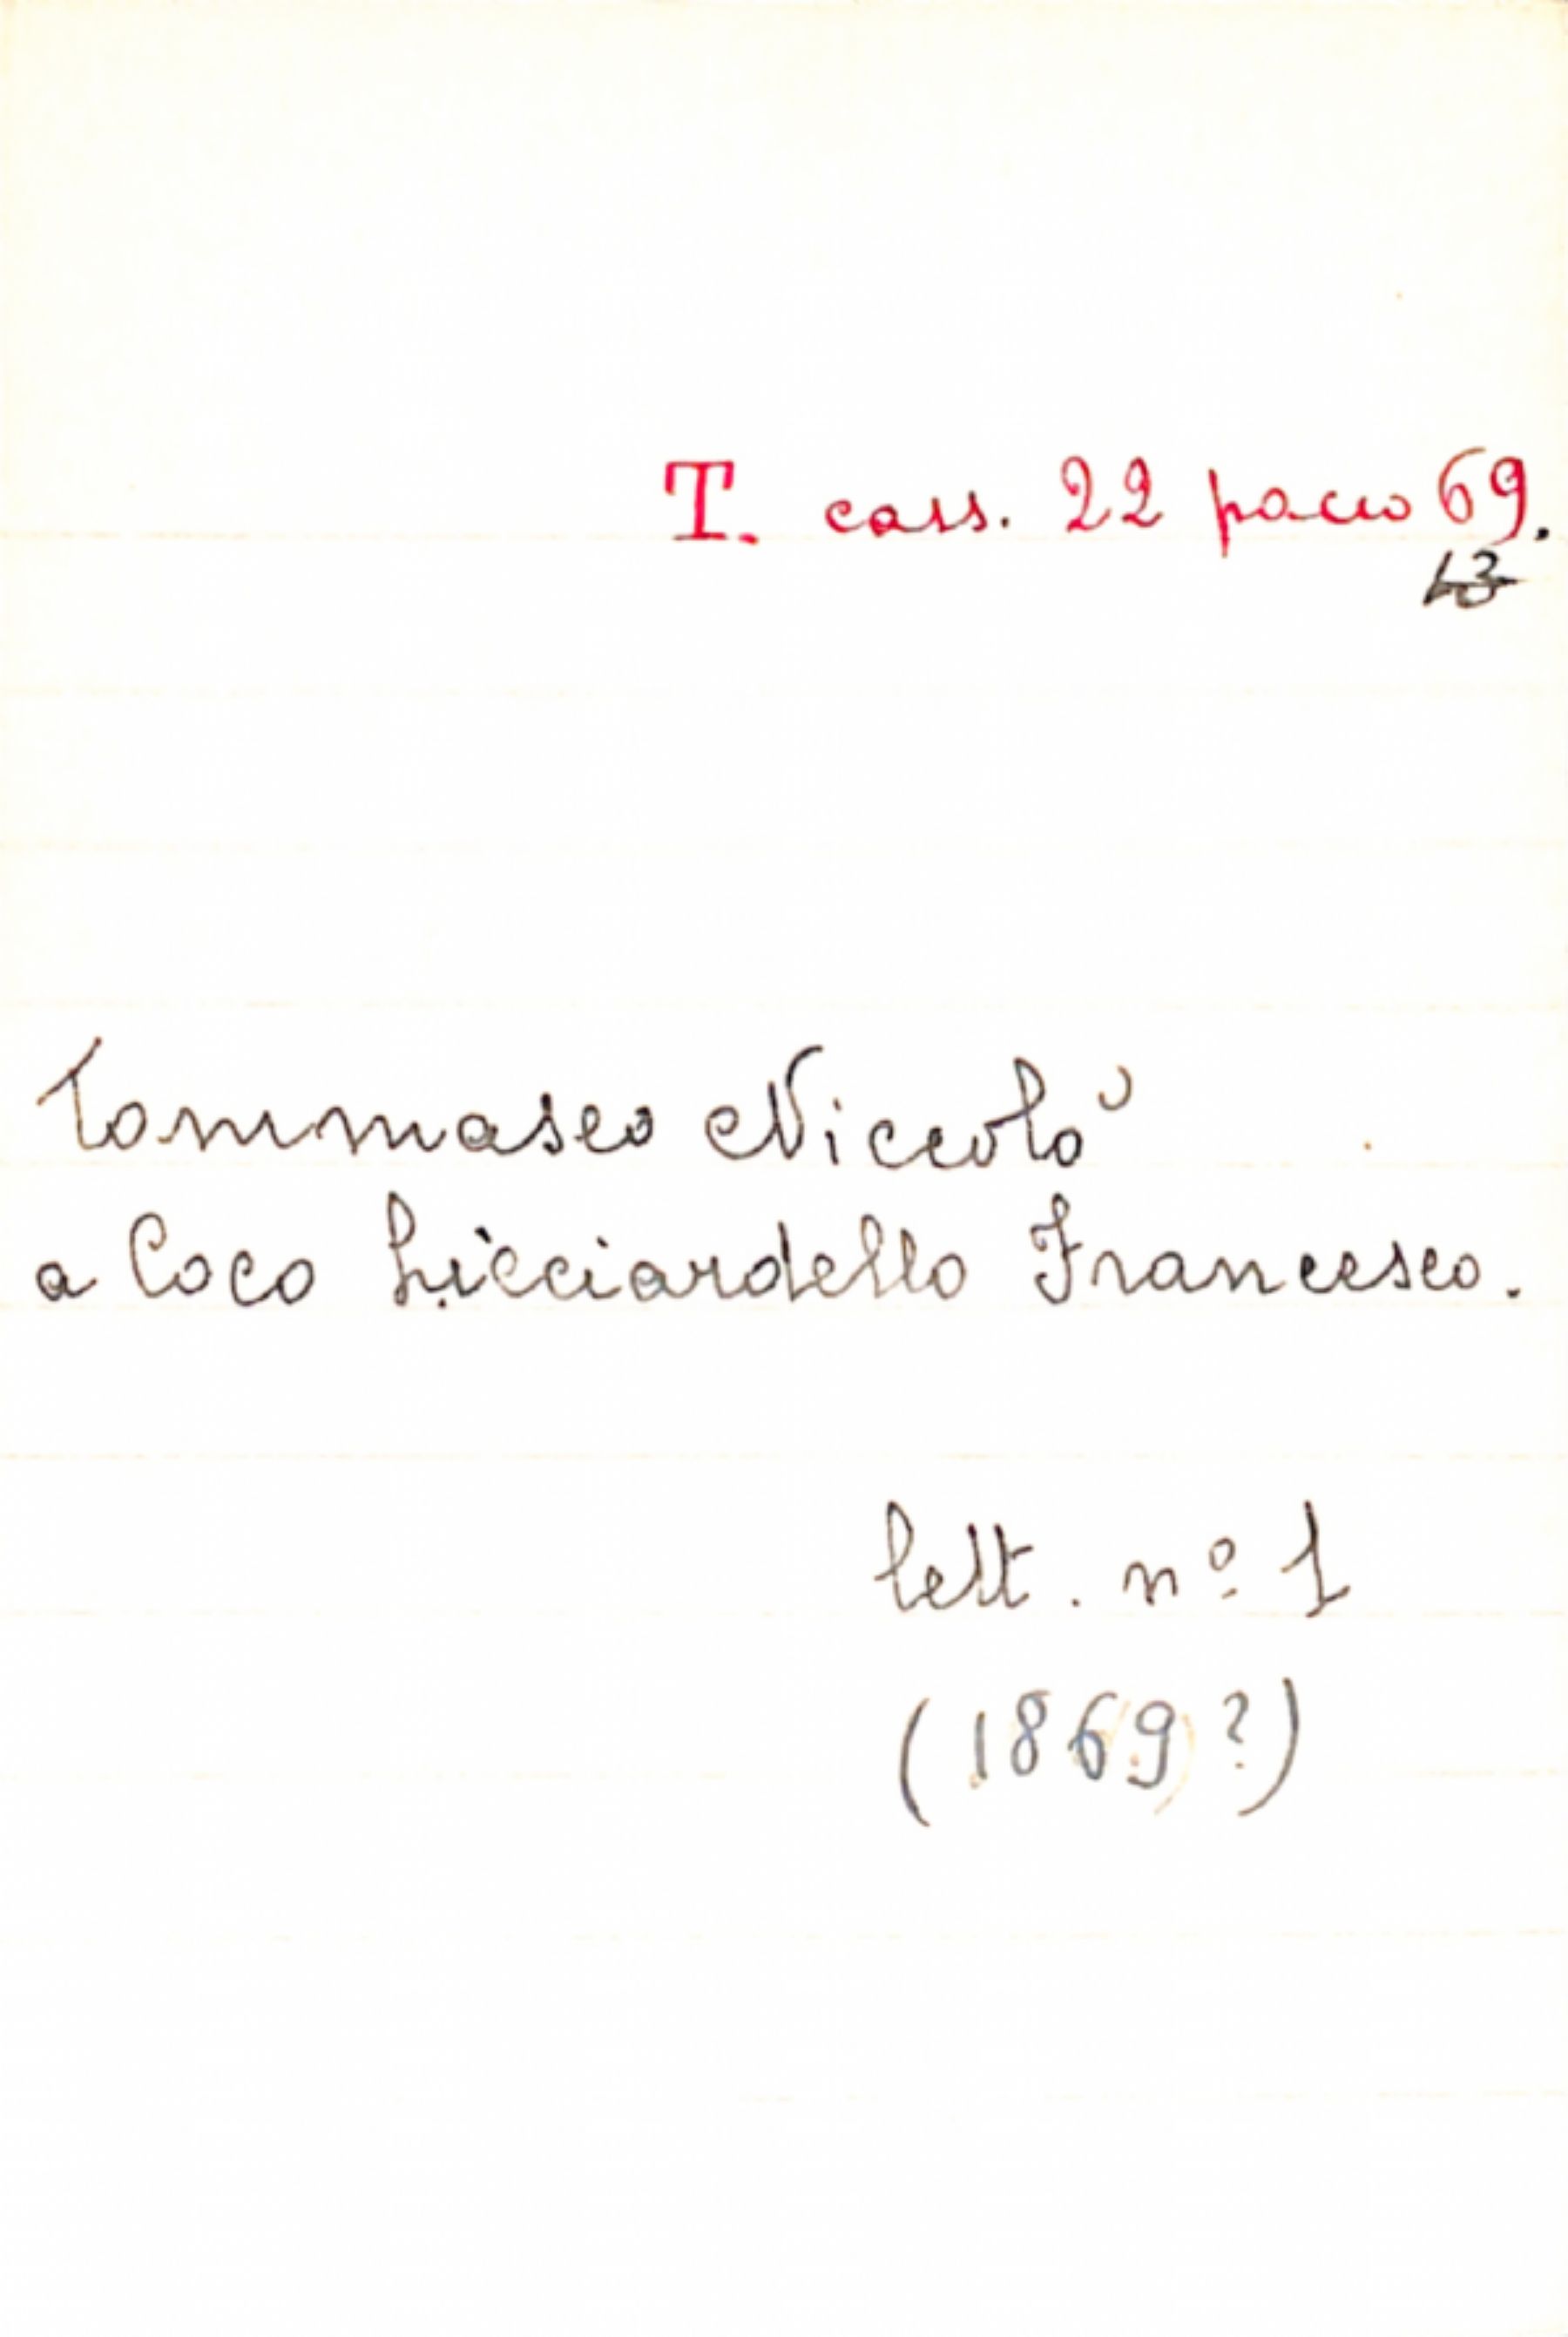 T. cass. 22 pacco 69.
13
Tommaseo Niccolò
a Coco Licciardello Francesco.
lett. nº 1
(1869?)